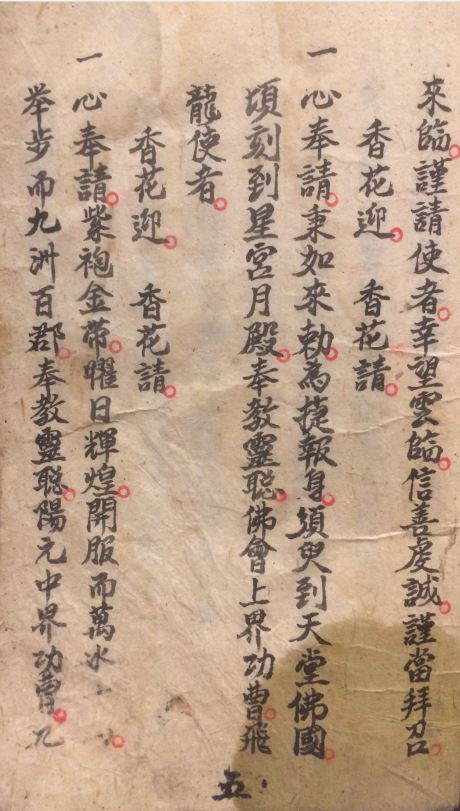 來臨謹請使者幸望雲臨信善虔誠謹當拜召
香花迎 香花請
一心奉請東如來勅為捷報身須臾到天堂佛國
頃刻到星宮月殿奉教靈聪佛會上界功曹飛
龍使者
香花迎 香花請
一心奉請紫袍金帶曜日輝煌開服而萬水
举步而九洲百郡奉教靈聪陽元中界功曹
五